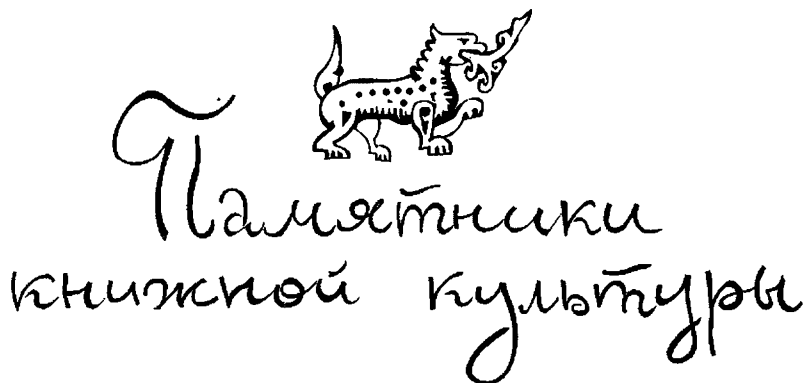 Памятники
книжной культуры